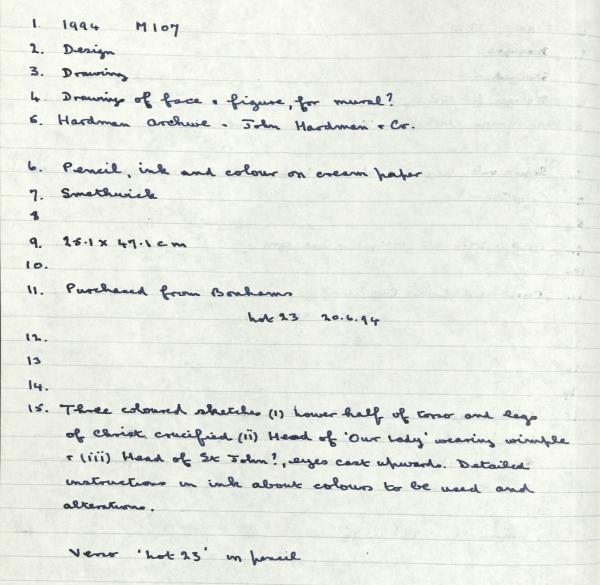 1. 1994 M107
2. Design
3. Drawing
4. Drawings of face & figure, for mural?
5. Hardman archive - John Hardman & Co.
6. Pencil, ink and colour on cream paper
7. Smethwick
8
9. 25.1 x 47.1 cm
10.
11. Purchased from Bonhams
Lot 23 20.6.94
12.
13
14.
15. Three coloured sketches (i) Lower half of torso and legs
of Christ crucified (ii) Head of 'Our Lady' wearing wimple
& (iii) Head of St John?, eyes cast upwards. Detailed
instructions in ink about colours to be used and
alterations.
Verso 'Lot 23' in pencil